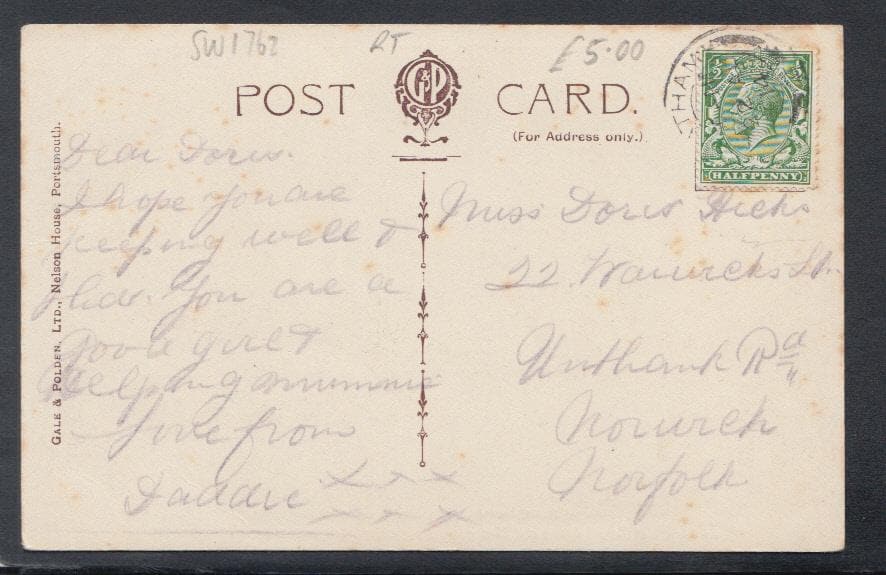 SW1762 RT £5.00
POST CARD.
G&P
(For Address only.)
THAM
½ ½
HALFPENNY
GALE & POLDEN, LTD., Nelson House, Portsmouth.
Dear Doris.
I hope you are
keeping well &
hear you are a
good girl &
helping mummie
Love from
Daddie x x x
x x x
Miss Doris Hicks
22 Warwick St.
Unthank Rd
Norwich
Norfolk